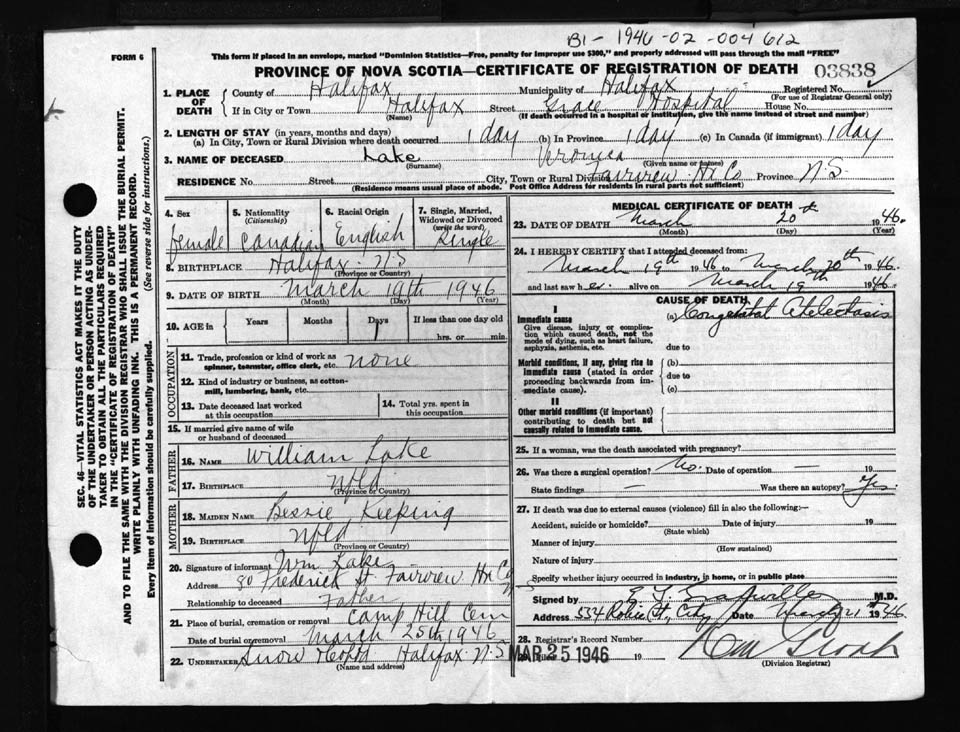 B1- 1946-02-004612
FORM 6
This form if placed in an envelope, marked "Dominion Statistics—Free, penalty for improper use $300," and properly addressed will pass through the mail "FREE"
PROVINCE OF NOVA SCOTIA—CERTIFICATE OF REGISTRATION OF DEATH 03838
1. PLACE OF DEATH County of Halifax Municipality of Halifax Registered No.
(For use of Registrar General only)
If in City or Town Halifax Street Grace Hospital House No.
(Name) (If death occurred in a hospital or institution, give the name instead of street and number)
2. LENGTH OF STAY (in years, months and days)
(a) In City, Town or Rural Division where death occurred 1 day (b) In Province 1 day (c) In Canada (if immigrant) 1 day
3. NAME OF DECEASED Lake Veronica
(Surname) (Given name or names)
RESIDENCE No. Street City, Town or Rural Division Fairview Hx Co Province N.S.
(Residence means usual place of abode. Post Office Address for residents in rural parts not sufficient)
4. Sex female
5. Nationality (Citizenship) Canadian
6. Racial Origin English
7. Single, Married, Widowed or Divorced (write the word) Single
8. BIRTHPLACE Halifax N.S
(Province or Country)
9. DATE OF BIRTH March 19th 1946
(Month) (Day) (Year)
10. AGE in Years Months Days If less than one day old
hrs. or min.
OCCUPATION
11. Trade, profession or kind of work as spinner, teamster, office clerk, etc. none
12. Kind of industry or business, as cotton-mill, lumbering, bank, etc.
13. Date deceased last worked at this occupation
14. Total yrs. spent in this occupation
15. If married give name of wife or husband of deceased
FATHER
16. NAME William Lake
17. BIRTHPLACE Nfld
(Province or Country)
MOTHER
18. MAIDEN NAME Bessie Keeping
19. BIRTHPLACE Nfld
(Province or Country)
20. Signature of informant Wm Lake
Address 80 Frederick St. Fairview Hx Co
Relationship to deceased Father
21. Place of burial, cremation or removal Camp Hill Cem
Date of burial or removal March 25th 1946
22. UNDERTAKER Snow & Co Ltd Halifax N.S
(Name and address)
MEDICAL CERTIFICATE OF DEATH
23. DATE OF DEATH March 20th 1946.
(Month) (Day) (Year)
24. I HEREBY CERTIFY that I attended deceased from:
March 19th 1946 to March 20th 1946.
and last saw her alive on March 19th 1946
CAUSE OF DEATH
I
Immediate cause (a) Congenital Atelectasis
Give disease, injury or complication which caused death, not the mode of dying, such as heart failure, asphyxia, asthenia, etc.
due to
Morbid conditions, if any, giving rise to immediate cause (stated in order proceeding backwards from immediate cause).
(b)
due to
(c)
II
Other morbid conditions (if important) contributing to death but not causally related to immediate cause.
25. If a woman, was the death associated with pregnancy?
26. Was there a surgical operation? No. Date of operation — 19
State findings — Was there an autopsy? Yes.
27. If death was due to external causes (violence) fill in also the following:—
Accident, suicide or homicide? Date of injury 19
(State which)
Manner of injury
(How sustained)
Nature of injury
Specify whether injury occurred in industry, in home, or in public place
Signed by M.D.
Address 534 Robie St, City Date March 21st 1946
28. Registrar's Record Number
Filed MAR 25 1946 19
(Division Registrar)
SEC. 46—VITAL STATISTICS ACT MAKES IT THE DUTY
OF THE UNDERTAKER OR PERSON ACTING AS UNDERTAKER TO OBTAIN ALL THE PARTICULARS REQUIRED
IN THE "CERTIFICATE OF REGISTRATION OF DEATH"
AND TO FILE THE SAME WITH THE DIVISION REGISTRAR WHO SHALL ISSUE THE BURIAL PERMIT.
WRITE PLAINLY WITH UNFADING INK. THIS IS A PERMANENT RECORD.
Every item of information should be carefully supplied. (See reverse side for instructions.)